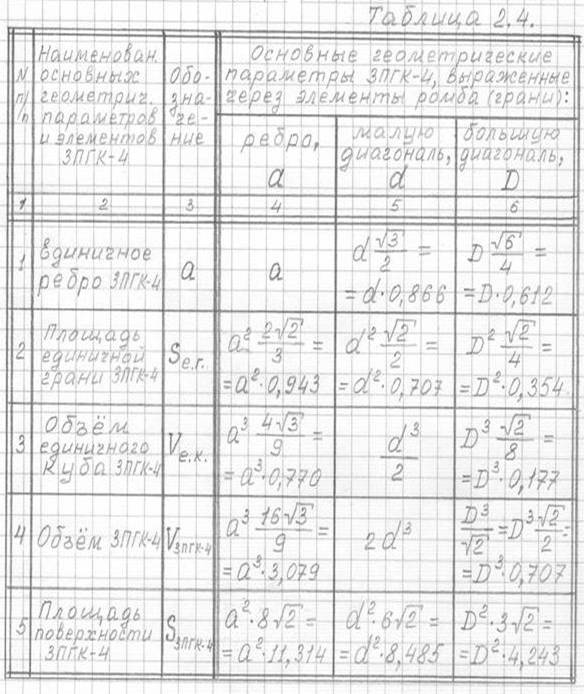 Таблица 2.4.
N п/п
Наименован. основных геометрич. параметров и элементов ЗПГК-4
Обо-зна-че-ние
Основные геометрические
параметры ЗПГК-4, выраженные
через элементы ромба (грани):
ребро, a
малую диагональ, d
большую диагональ, D
1 2 3 4 5 6
1
Единичное
ребро ЗПГК-4
a
a
d √3/2 =
= d·0,866
D √6/4 =
= D·0,612
2
Площадь
единичной
грани ЗПГК-4
Sе.г.
a² 2√2/3 =
= a²·0,943
d² √2/2 =
= d²·0,707
D² √2/4 =
= D²·0,354
3
Объём
единичного
куба ЗПГК-4
Vе.к.
a³ 4√3/9 =
= a³·0,770
d³/2
D³ √2/8 =
= D³·0,177
4
Объём ЗПГК-4
VЗПГК-4
a³ 16√3/9 =
= a³·3,079
2d³
D³/√2 = D³ √2/2 =
= D³·0,707
5
Площадь
поверхности
ЗПГК-4
SЗПГК-4
a²·8√2 =
= a²·11,314
d²·6√2 =
= d²·8,485
D²·3√2 =
= D²·4,243